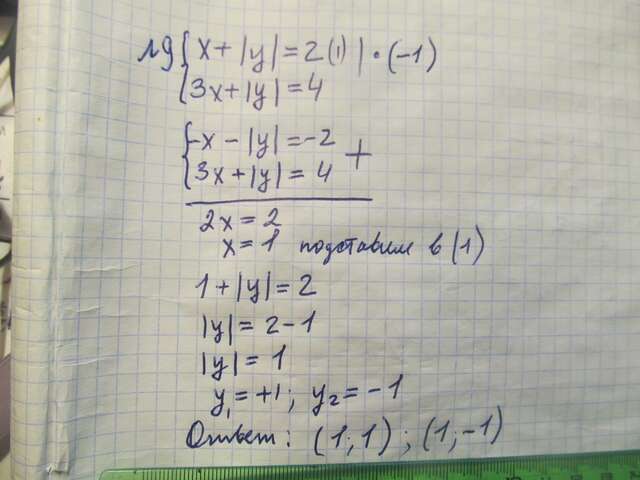 №9 { x + |y| = 2 (1) | · (-1)
3x + |y| = 4
{ -x - |y| = -2
3x + |y| = 4 +
2x = 2
x = 1 подставим в (1)
1 + |y| = 2
|y| = 2 - 1
|y| = 1
y₁ = +1; y₂ = -1
Ответ: (1; 1); (1; -1)